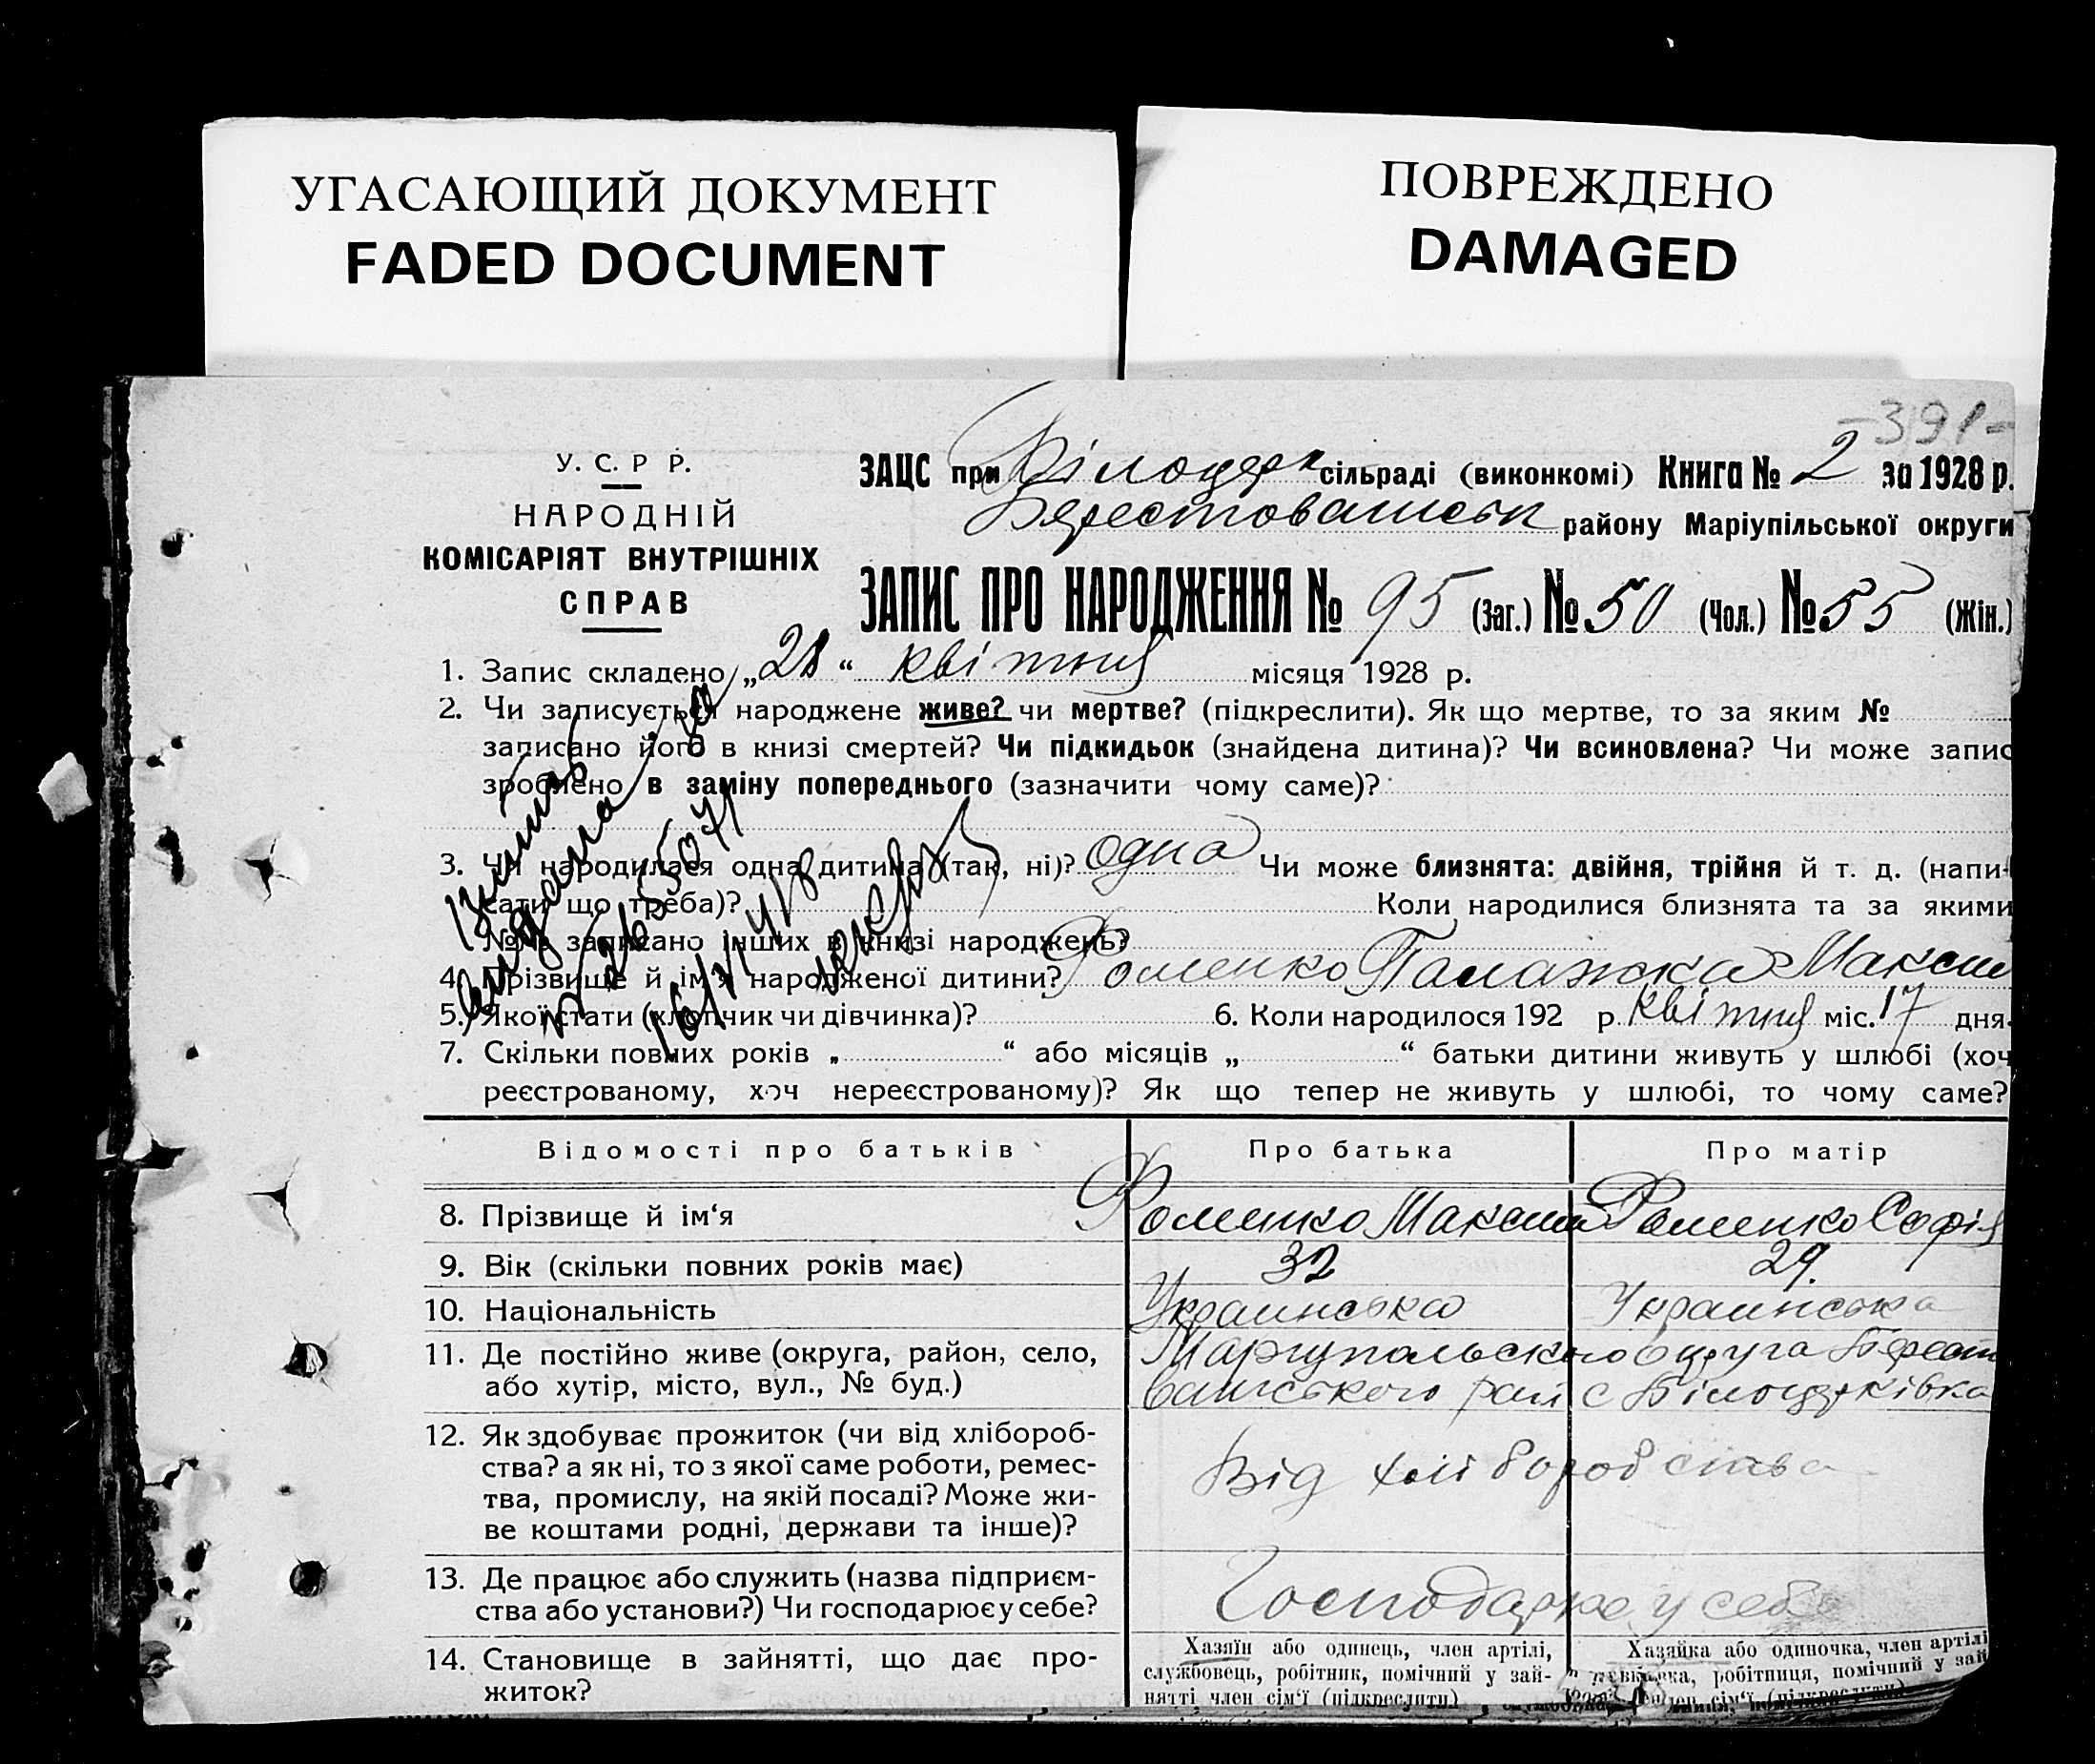 УГАСАЮЩИЙ ДОКУМЕНТ
FADED DOCUMENT
ПОВРЕЖДЕНО
DAMAGED
-391-
У. С. Р Р.
НАРОДНІЙ
КОМІСАРІЯТ ВНУТРІШНІХ
СПРАВ
ЗАЦС при Білоцерк сільраді (виконкомі) Книга № 2 за 1928 р.
району Маріупільської округи
ЗАПИС ПРО НАРОДЖЕННЯ № 95 (Заг.) № 50 (Чол.) № 55 (Жін.)
1. Запис складено „28“ квітня місяця 1928 р.
2. Чи записується народжене живе? чи мертве? (підкреслити). Як що мертве, то за яким №
записано його в книзі смертей? Чи підкидьок (знайдена дитина)? Чи всиновлена? Чи може запис
зроблено в заміну попереднього (зазначити чому саме)?
3. Чи народилася одна дитина (так, ні)? одна Чи може близнята: двійня, трійня й т. д. (напи-
сати що треба)? Коли народилися близнята та за якими
№№ записано інших в книзі народжень?
4. Прізвище й ім'я народженої дитини? Фоменко Палажка Максим
5. Якої стати (хлопчик чи дівчинка)? 6. Коли народилося 192 р. квітня міс. 17 дня.
7. Скільки повних років „ “ або місяців „ “ батьки дитини живуть у шлюбі (хоч
реєстрованому, хоч нереєстрованому)? Як що тепер не живуть у шлюбі, то чому саме?
Відомості про батьків Про батька Про матір
8. Прізвище й ім'я Фоменко Максим Фоменко Софія
9. Вік (скільки повних років має) 32 29.
10. Національність Украинська Украинська
11. Де постійно живе (округа, район, село,
або хутір, місто, вул., № буд.)
округа
ського рай с Білоцерківка
12. Як здобуває прожиток (чи від хлібороб-
ства? а як ні, то з якої саме роботи, ремес-
тва, промислу, на якій посаді? Може жи-
ве коштами родні, держави та інше)?
Від хліборобства
13. Де працює або служить (назва підприєм-
ства або установи?) Чи господарює у себе?
Господарює у себе
14. Становище в зайнятті, що дає про-
житок?
Хазяїн або одинець, член артілі,
службовець, робітник, помічний у зай-
нятті член сім'ї (підкреслити)
Хазяйка або одиночка, член артілі
робітниця, помічний у зай